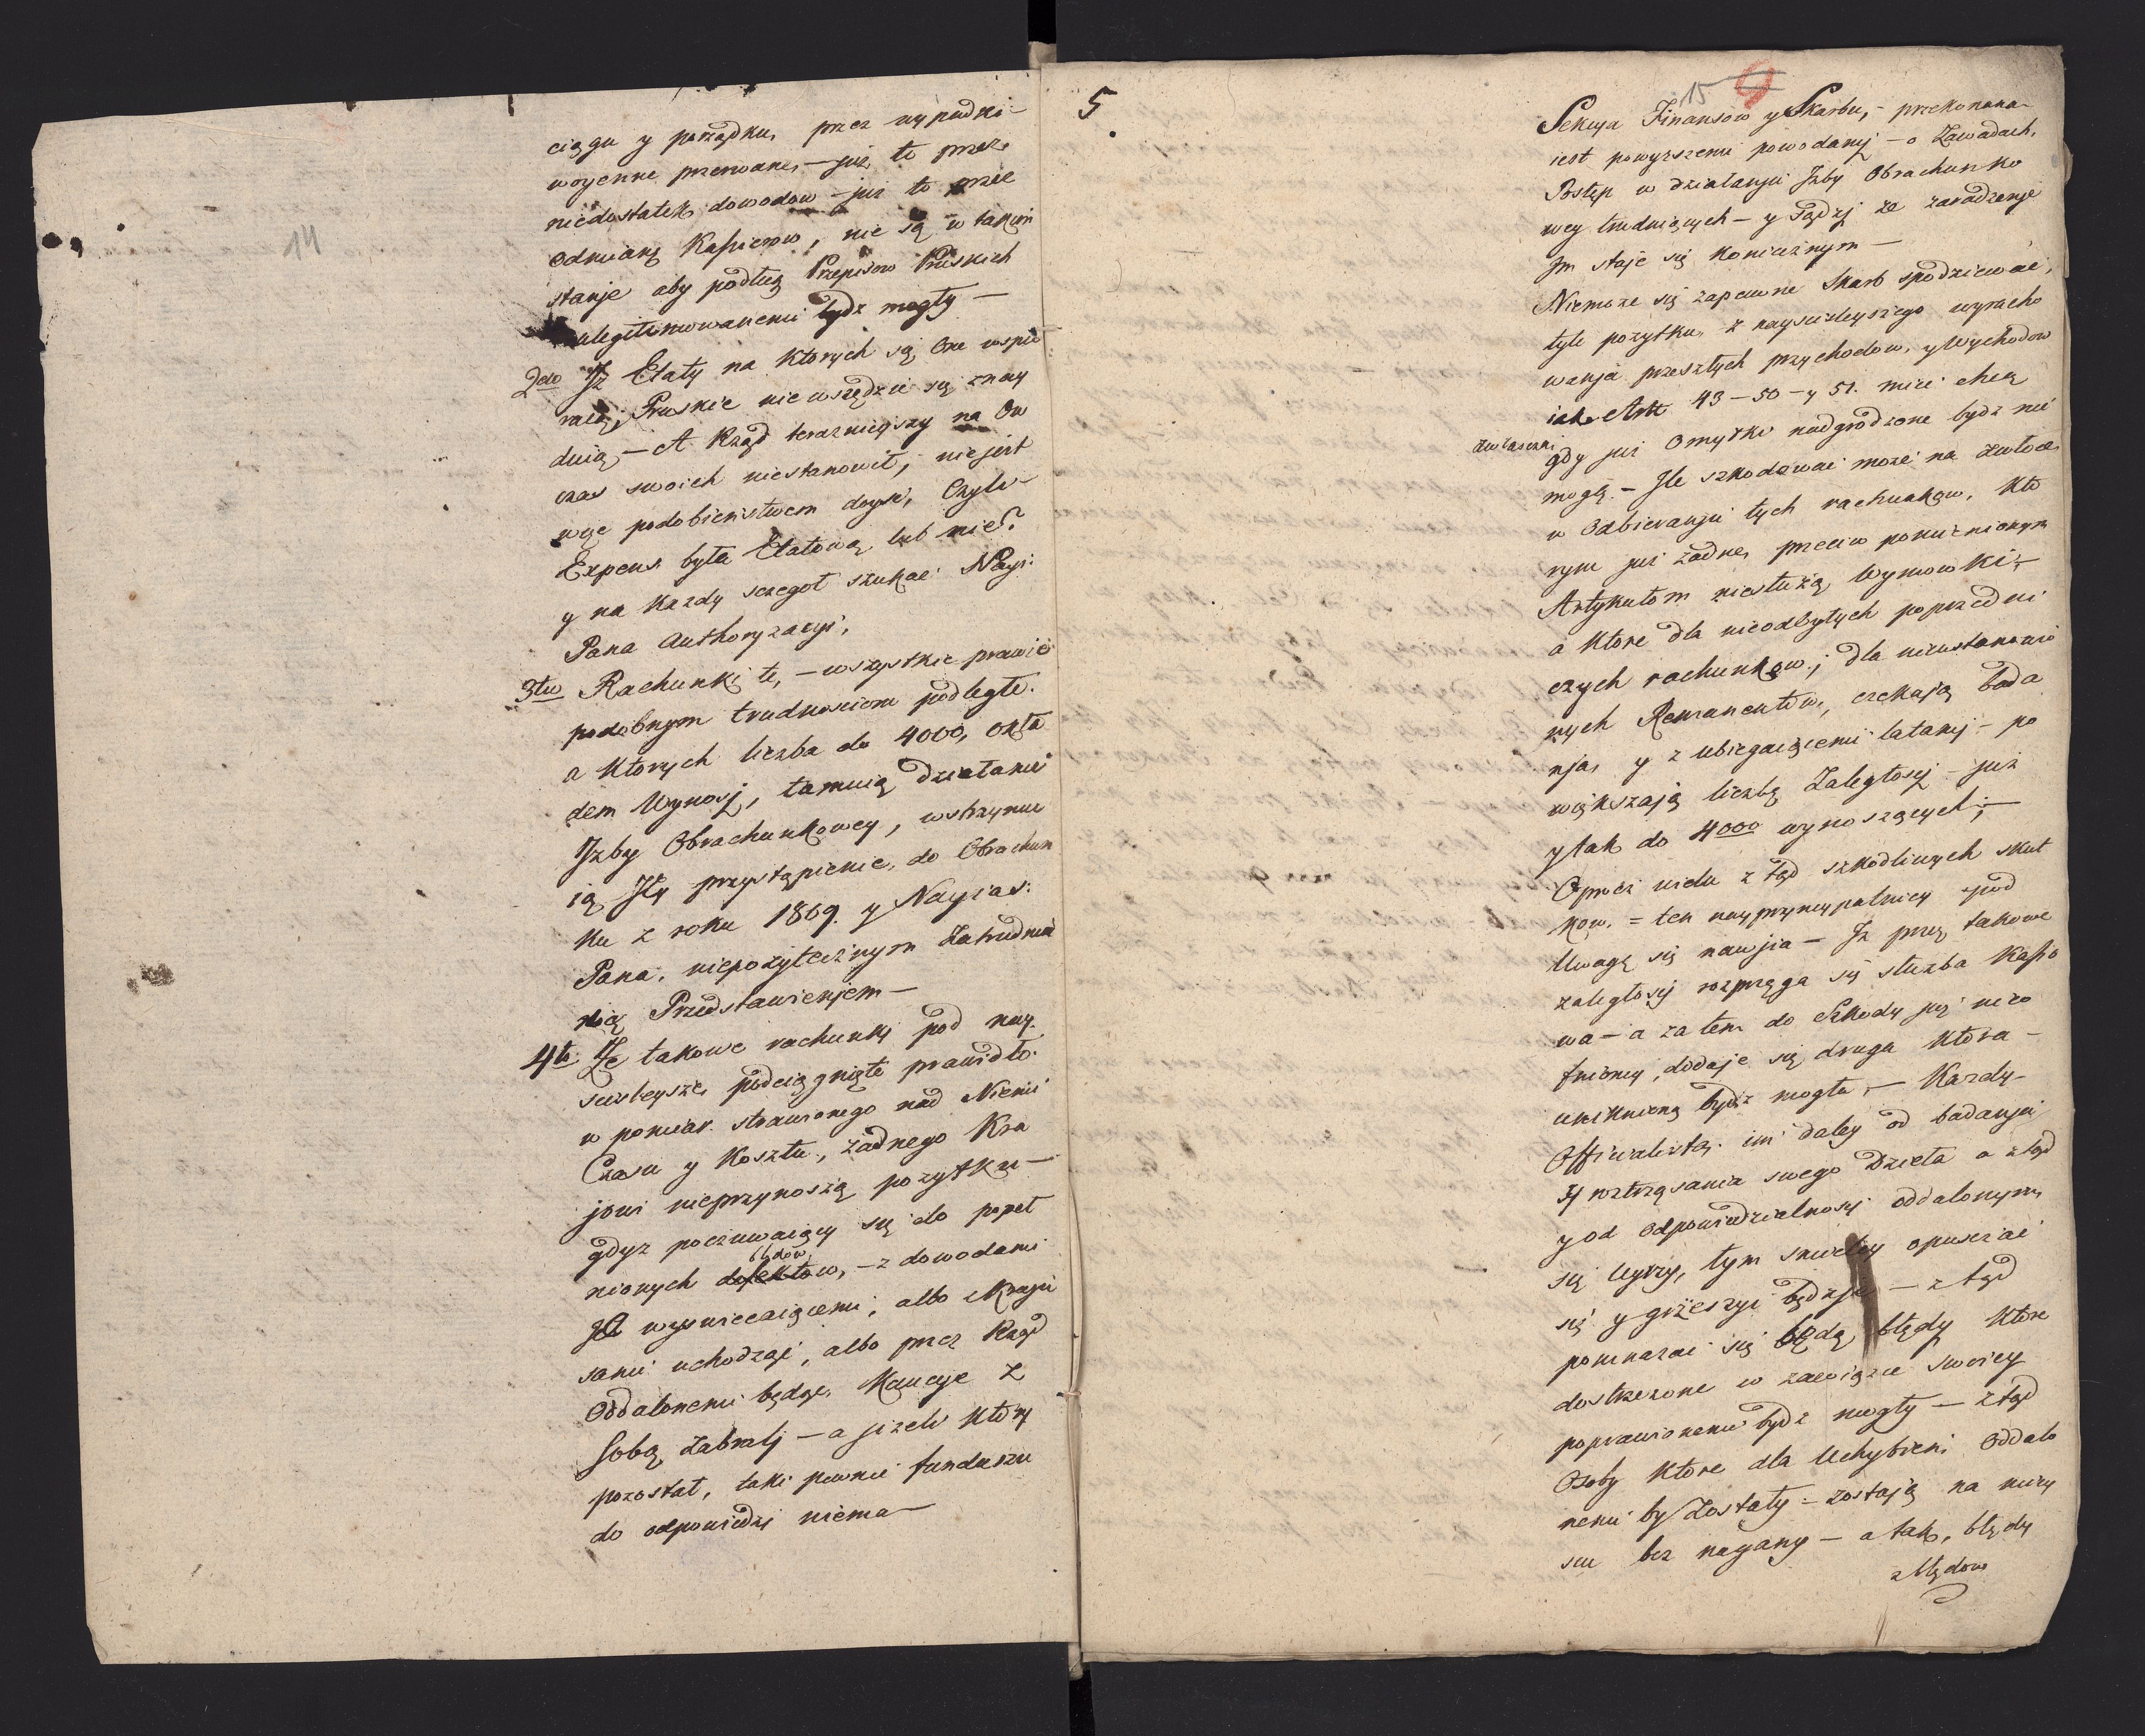 14
ciągu y porządku, przez wypadki
woyenne przerwane, – już to przez
niedostatek dowodow – już to przez
odmianę Kassierow, nie są w takim
stanje aby podług Przepisow Pruskich
ulegitimowanemi bydz mogły –
2do Jż Etaty na ktorych się one wspie
raią, Pruskie nie wszędzie się znay
duią, – A Rząd teraznieyszy na ow
czas swoich niestanowił, nie jest
więc podobienstwem doyść, Czyli
Expens była Etatową lub nie?
y na każdy szczegoł szukać Nayi:
Pana Authoryzacyi,
3tio Rachunki te, – wszystkie prawie
podobnym trudnosciom podległe.
a ktorych liczba do 4000, okła
dem Wynosj, tamuią działanie
Jzby Obrachunkowey, wstrzymu
ią Jey przystąpienie, do Obrachun
ku z roku 1809. y Nayias:
Pana, niepożytecznym Zatrudnia
nią Przedstawienjem –
4to Że takowe rachunki pod nay
scisleysze, podciągnięte prawidło.
w pomiar. strawionego nad Niemi
Czasu y Kosztu, żadnego Kra
jowi nieprzynoszą pożytku –
gdyż poczuwaiący się do popeł
błędów
nionych defektow, – z dowodami
Je wyswiecaiącemi, albo z Kraju
sami uchodząc, albo przez Rząd
Oddalonemi będąc, Kaucye z
Sobą Zabralj – a jeżeli ktory
pozostał, taki pewnie funduszu
do odpowiedzj niema –
5
15
9
Sekcya Finansow y Skarbu, – przekonana
iest powyższemi powodamj – o Zawadach,
Postęp w działanju Jzby Obrachunko
wey trudniących – y sądzj że zaradzenje
Jm staje się koniecznym –
Niemoże się zapewne Skarb spodziewać,
tyle pożytku, z nayscisleyszego wyracho
wanja przeszłych przychodow, y Wychodow
iak Artt 43 – 50 – y 51. mieć chcą
zwłaszcza
gdy już omyłki nadgrodzone bydz nie
mogą. – Jle szkodować może na zwłoce
w Odbieranju tych rachunkow, kto
rym już żadne, przeciw pomienionym
Artykułom niesłużą Wymowki –
a ktore dla nieodbytych poprzedni
czych rachunkow; dla nieustanowio
nych Remanentow, czekają bada
nja, y z ubiegaiącemi latamj – po
większają liczbę Zaległosćj – już
y tak do 4000 wynoszących; –
Oprocz wielu ztąd szkodliwych skut
kow. = ten nayprzyncypalnieyszy pod
Uwagę się nawjia – Jż przez takowe
zaległosćj rozprzęga się służba Kasso
wa – a zatem do Szkody już nieco
dodaje się druga ktora –
uniknioną bydz mogła, – Każdy
Officialista, im daley od badanja
y roztrząsania swego Dzieła a ztąd
y od odpowiedzialnosćj oddalonym
się uyrzy, tym smieley opuszczać
się y grzeszyć będzje – ztąd
pomnażać się będą błędy ktore
dostrzeżone w zawiązce swoiey
poprawionemi bydz mogły – ztąd
Osoby ktore dla Uchybień Oddalo
nemi by Zostały – zostają na miey
scu bez nagany – a tak, błędy
z błędow